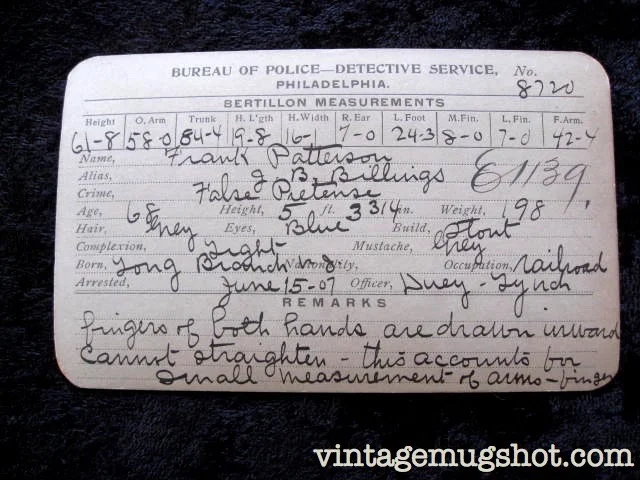 BUREAU OF POLICE—DETECTIVE SERVICE, No. 8720
PHILADELPHIA.
BERTILLON MEASUREMENTS
Height O. Arm Trunk H. L'gth H. Width R. Ear L. Foot M. Fin. L, Fin. F. Arm.
61-8 58-0 84-4 19-8 16-1 7-0 24-3 8-0 7-0 42-4
Name, Frank Patterson
Alias, J. B. Billings E1139
Crime, False Pretense
Age, 68 Height, 5 ft. 3 3/4 in. Weight, 198
Hair, Grey Eyes, Blue Build, Stout
Complexion, Light Mustache, Grey
Born, Long Branch N.J. Nationality, Occupation, Railroad
Arrested, June 15-07 Officer, Duey-Lynch
REMARKS
fingers of both hands are drawn inward
Cannot straighten - this accounts for
small measurement of arms-finger
vintagemugshot.com